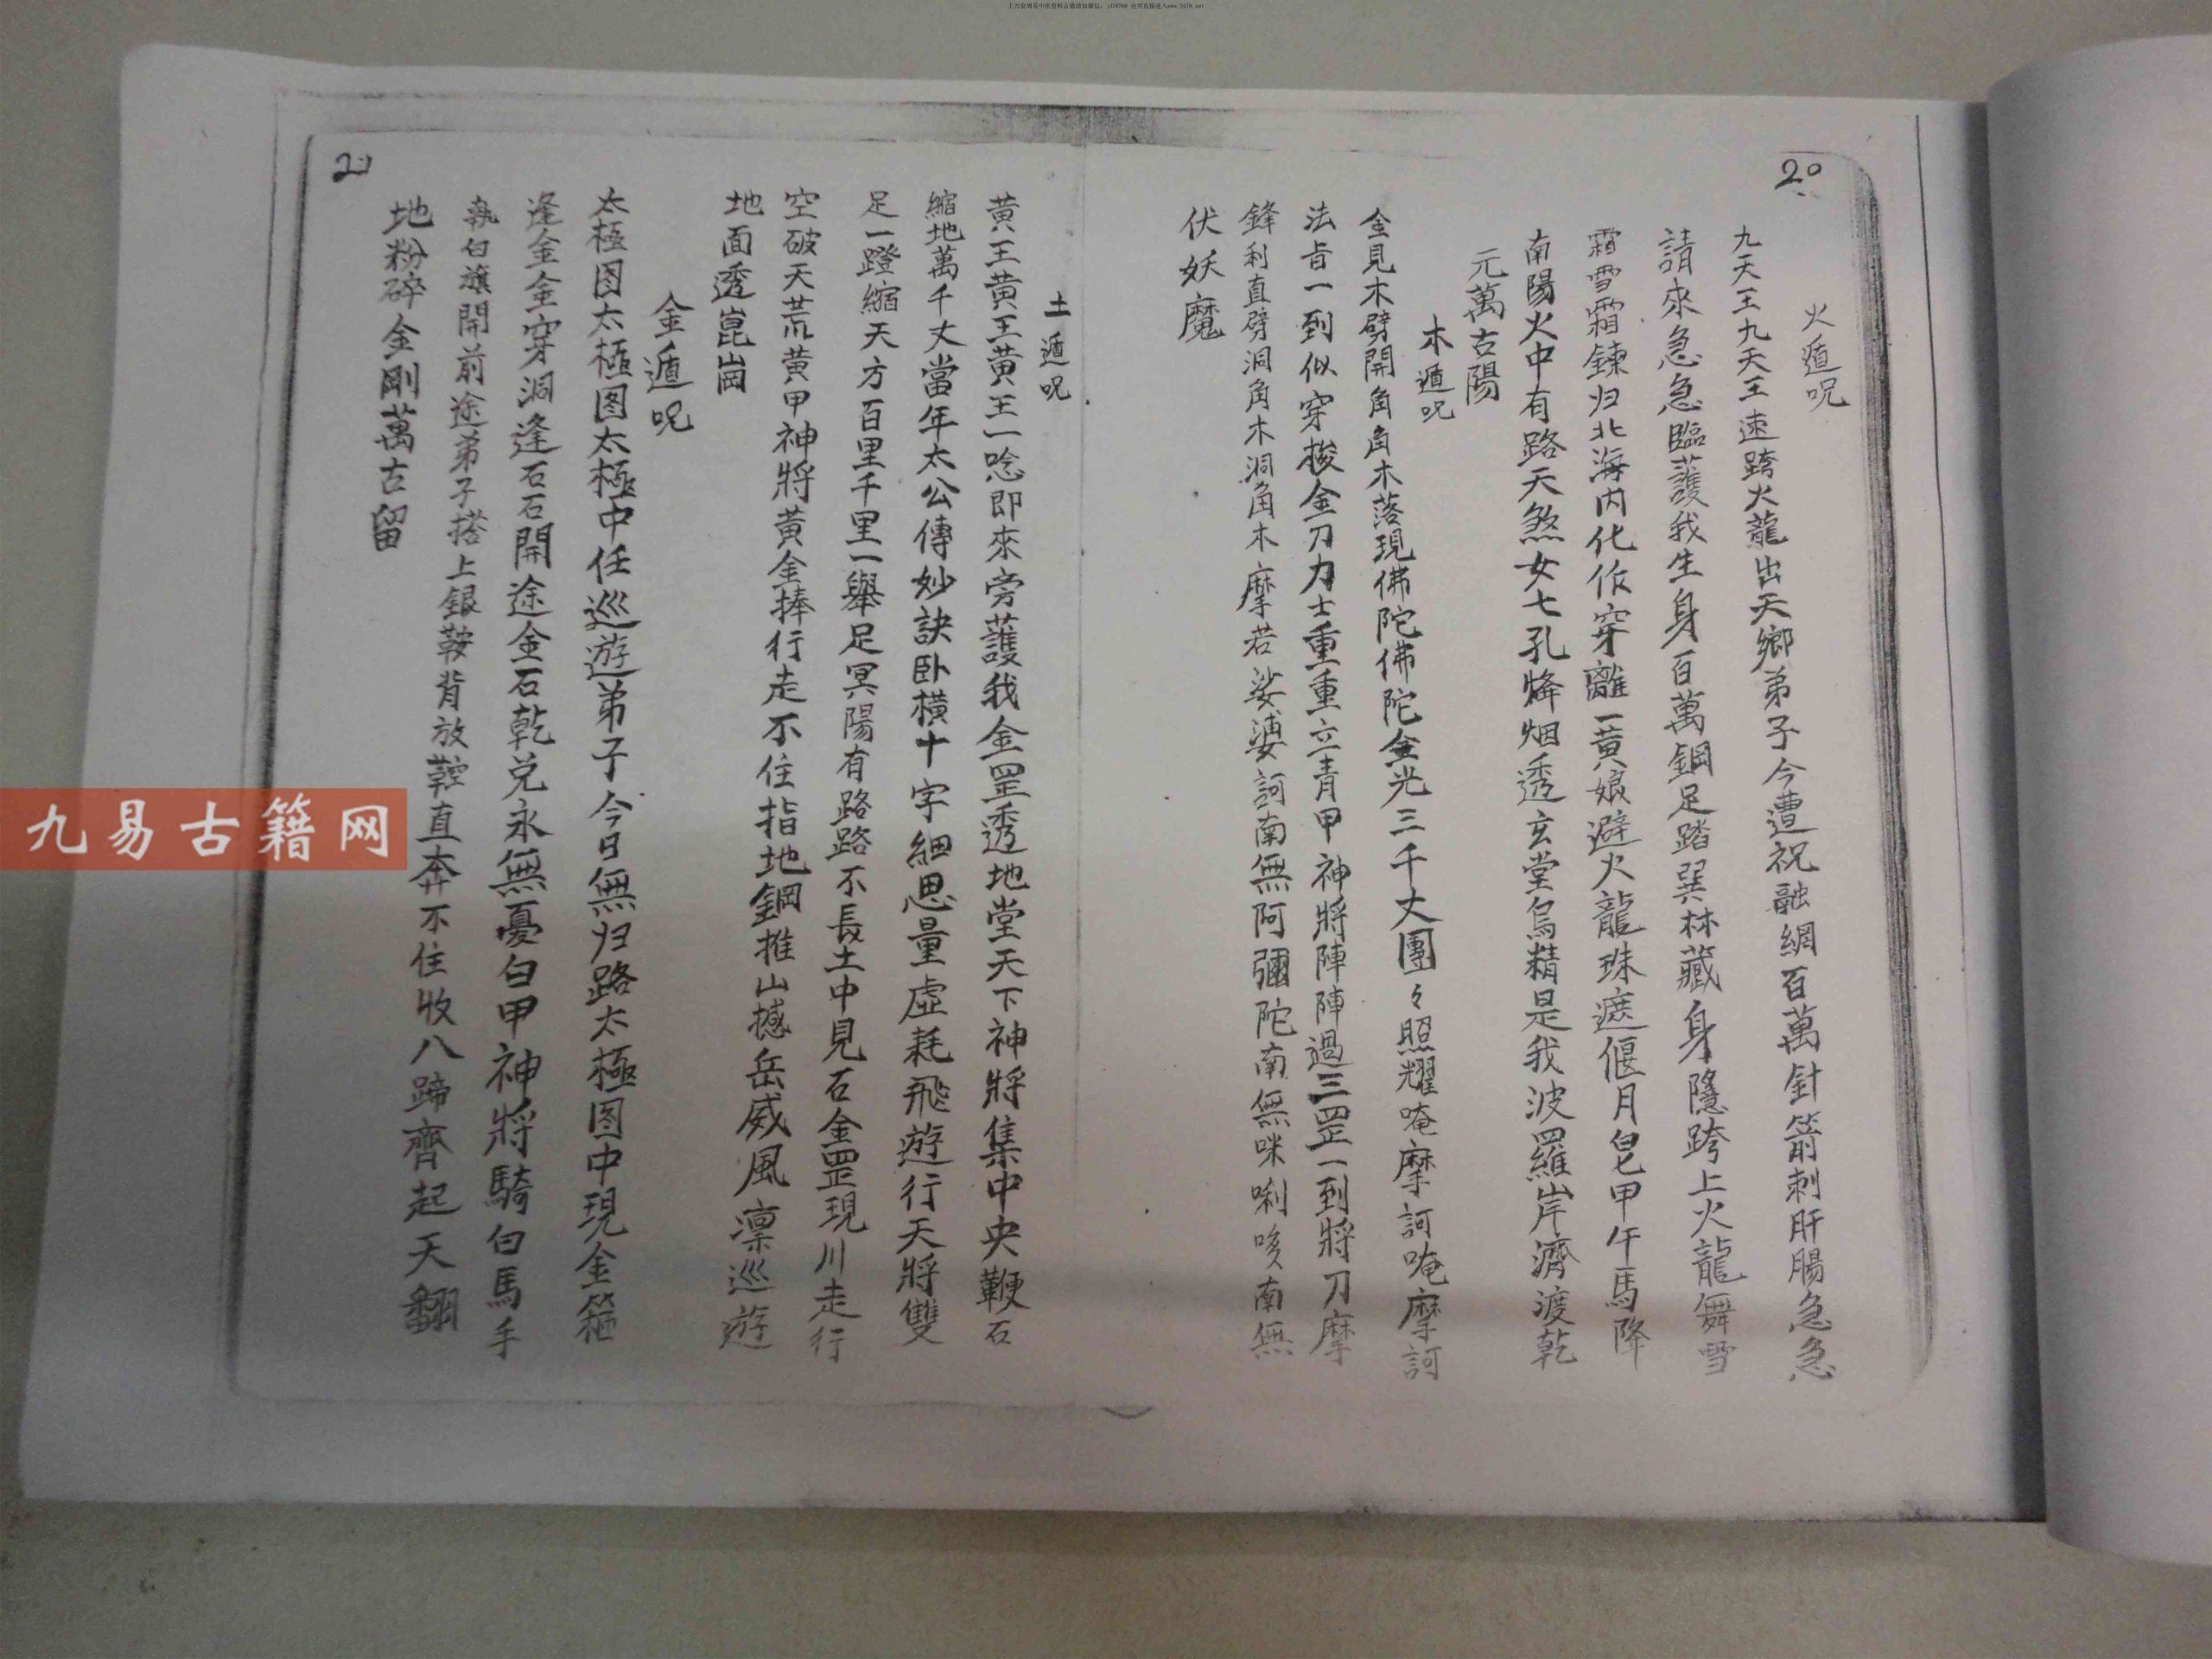 20
火遁咒
九天王九天王速跨火龍出天鄉弟子今遭祝融網百萬針箭刺肝腸急急
請來急急臨護我生身百萬鋼足踏巽林藏身隱跨上火龍舞雪
霜雪霜鍊归北海内化作穿離一黃娘避火龍珠遮偃月皂甲午馬降
南陽火中有路天煞女七孔烽烟透玄堂烏精是我波羅岸濟渡乾
元萬古陽
木遁咒
金見木劈開角角木落現佛陀佛陀金光三千丈團々照耀唵摩訶唵摩訶
法旨一到似穿梭金刀力士重重立青甲神將陣陣過三罡一到將刀摩
鋒利直劈洞角木洞角木摩若娑婆訶南無阿彌陀南無咪唎唆南無
伏妖魔
土遁咒
黃王黃王黃王一唸即來旁護我金罡透地堂天下神將集中央鞭石
縮地萬千丈當年太公傳妙訣卧橫十字細思量虛耗飛遊行天將雙
足一蹬縮天方百里千里一舉足冥陽有路路不長土中見石金罡現川走行
空破天荒黃甲神將黃金捧行走不住指地鋼推山撼岳威風凛巡遊
地面透崑崗
金遁咒
太極图太極图太極中任巡遊弟子今日無归路太極图中現金箍
逢金金穿洞逢石石開途金石乾兑永無憂白甲神將騎白馬手
執白旗開前途弟子搭上銀鞍背放鞚直奔不住收八蹄齊起天翻
地粉碎金剛萬古留
21
九易古籍网